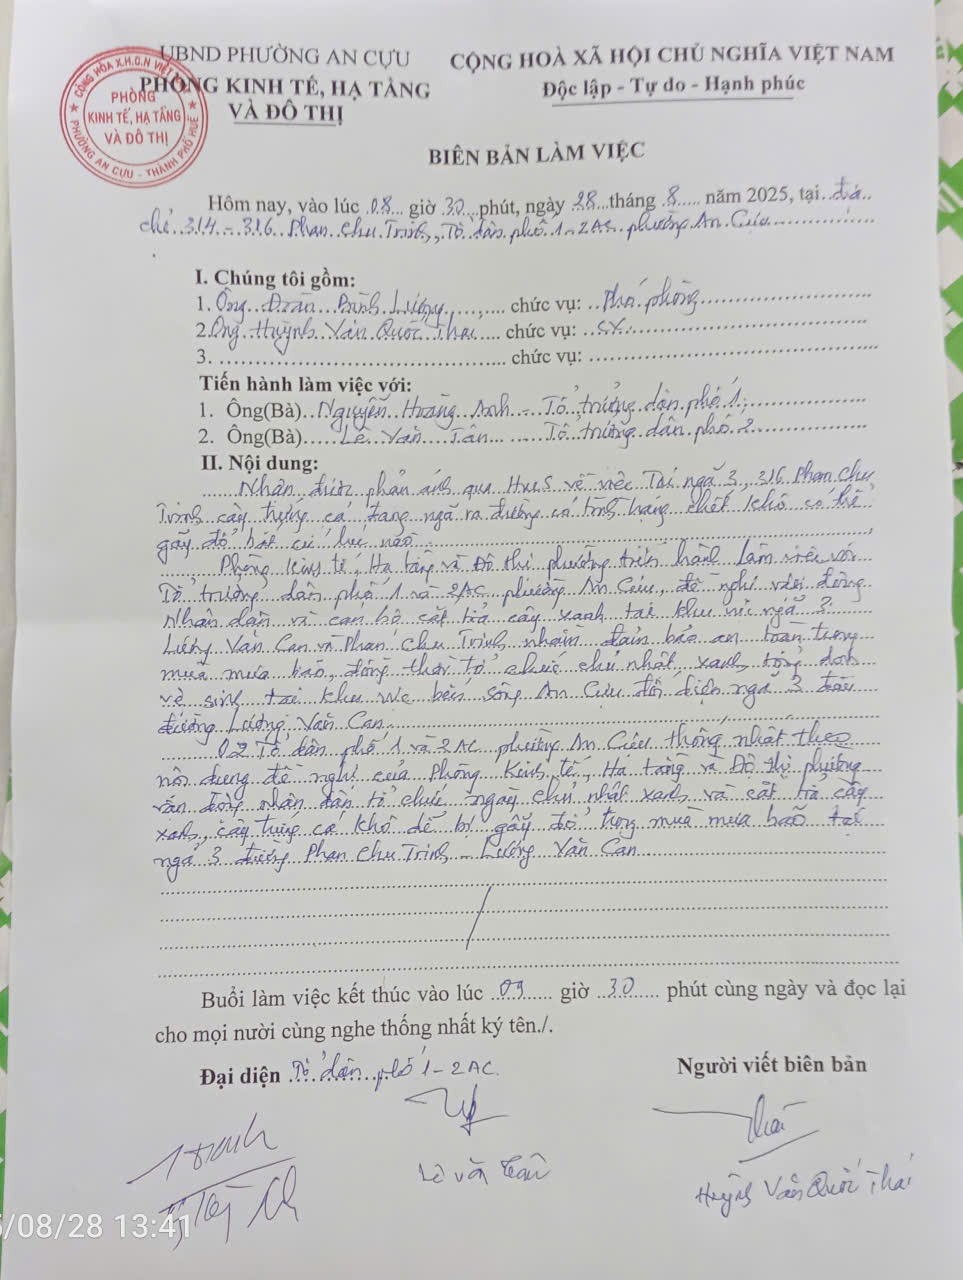 UBND PHƯỜNG AN CỰU
CỘNG HOÀ XÃ HỘI CHỦ NGHĨA VIỆT NAM
PHÒNG KINH TẾ, HẠ TẦNG
VÀ ĐÔ THỊ
Độc lập - Tự do - Hạnh phúc
CỘNG HÒA X.H.C.N VIỆT
PHÒNG
KINH TẾ, HẠ TẦNG
VÀ ĐÔ THỊ
PHƯỜNG AN CỰU - THÀNH PHỐ HUẾ
BIÊN BẢN LÀM VIỆC
Hôm nay, vào lúc 08 giờ 30 phút, ngày 28 tháng 8 năm 2025, tại địa
chỉ 314 - 316 Phan Chu Trinh, Tổ dân phố 1-2AC phường An Cựu
I. Chúng tôi gồm:
1. Ông Đoàn Đình Lượng chức vụ: Phó phòng
2. Ông Huỳnh Văn Quốc Thái chức vụ: CV
3. chức vụ:
Tiến hành làm việc với:
1. Ông(Bà) Nguyễn Hoàng Anh - Tổ trưởng dân phố 1
2. Ông(Bà) Lê Văn Tân Tổ trưởng dân phố 2
II. Nội dung:
Nhận được phản ánh qua HueS về việc Tại ngã 3, 316 Phan Chu
Trinh cây trứng cá đang ngã ra đường có tình trạng chết khô có thể
gãy đổ bất cứ lúc nào
Phòng Kinh tế, Hạ tầng và Đô thị phường tiến hành làm việc với
Tổ trưởng dân phố 1 và 2AC phường An Cựu, đề nghị vận động
Nhân dân và cán bộ cắt tỉa cây xanh tại khu vực ngã 3
Lương Văn Can và Phan Chu Trinh nhằm đảm bảo an toàn trong
mùa mưa bão, đồng thời tổ chức chủ nhật xanh, tổng dọn
vệ sinh tại khu vực bến sông An Cựu đối diện ngã 3 đầu
đường Lương Văn Can
02 Tổ dân phố 1 và 2AC phường An Cựu thống nhất theo
nội dung đề nghị của Phòng Kinh tế, Hạ tầng và Đô thị phường
vận động nhân dân tổ chức ngày chủ nhật xanh và cắt tỉa cây
xanh, cây trứng cá khô dễ bị gãy đổ trong mùa mưa bão tại
ngã 3 đường Phan Chu Trinh - Lương Văn Can
Buổi làm việc kết thúc vào lúc 09 giờ 30 phút cùng ngày và đọc lại
cho mọi nười cùng nghe thống nhất ký tên./.
Đại diện Tổ dân phố 1-2AC
Người viết biên bản
Lê Văn Tân
Huỳnh Văn Quốc Thái
5/08/28 13:41